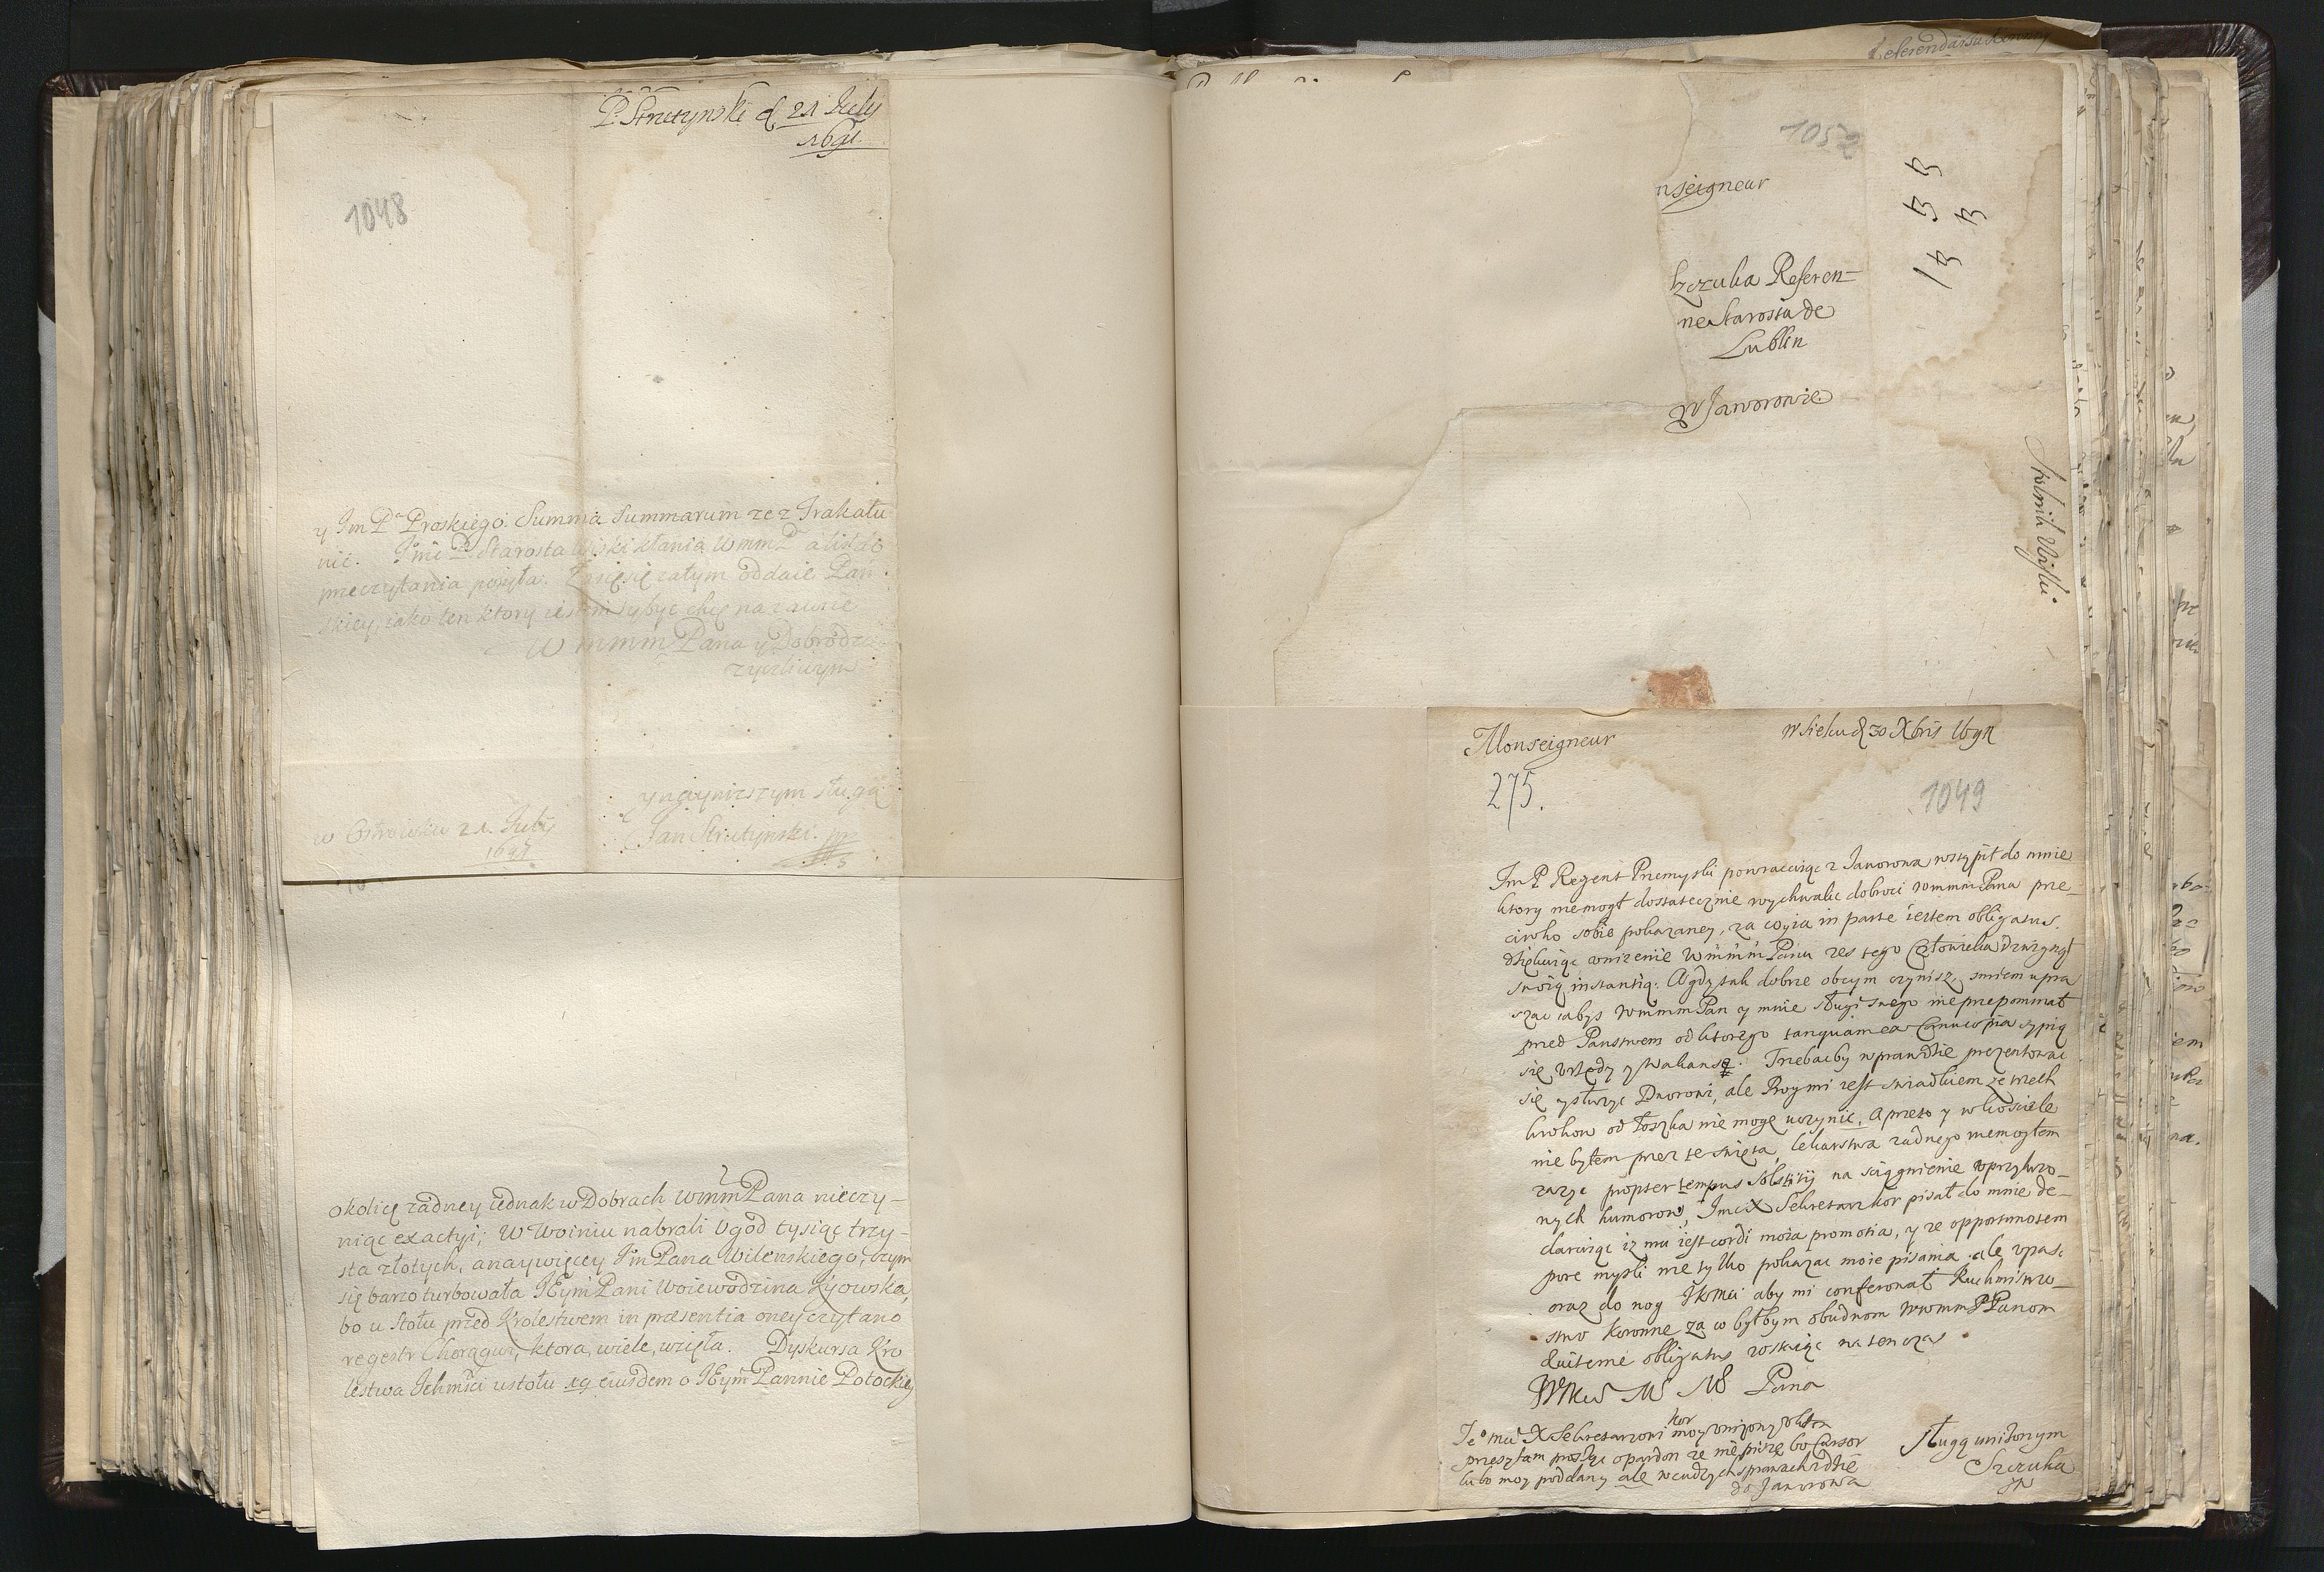 P. Strutynski d. 21 July
1691.
1048
y Im P. Proskiego. Summa Summarum ze z Trakatu
nic. Imć P. Starosta kłania WmmP a list do
przeczytania posyła. Łasce się zatym oddaie Pań
skiey, iako ten ktory iestem y być chcę na zawsze
W mmm Pana y Dobrodz.
życzliwym
y nayniższym sługą
w Ostrowku 21. July
Jan Strutynski mp
okolicę żadney iednak w Dobrach WmmPana nieczy-
niąc exactyi; W Woiniu nabrali Ugod tysiąc trzy-
sta złotych, a naywięcey Im Pana Wilenskiego, czym
się barzo turbowała JEym Pani Woiewodzina Kyowska,
bo u Stołu przed Krolestwem in præsentia oney czytano
regestr Chorągwi, ktora, wiele, wzięła. Dyskursa Kro
lestwa Ichmści u stołu eiusdem o JEym Pannie Potockiey
Referendarsu Koronny
1052
nseigneur
zczuka Referen-
ne Starosta de
Lublin
w Jaworowie
Stolnik
Monseigneur
d 30 Xbris 1691
275.
1049
Im P Regent Przemyski powracaiąc z Jaworowa wstąpił do mnie
ktory niemogł dostatecznie wychwalic dobroci WmmmPana prze-
ciwko sobie pokazaney, za co y ia in parte iestem obligatus.
dziękuiąc unizenie WmmmPanu zes tego Człowieka dzwignął
swoią instantią. A gdy tak dobrze obcym czynisz, smiem upra
szac abys WmmmPan y mnie sługi swego nie przepomniał
przed Panstwem od ktorego tanquam ex Cornucopia sypią
się Urzędy y Wakanse. Trzebaby wprawdzie prezentowac
się y słuzyc Dworowi, ale Bog mi iest swiadkiem ze trzech
krokow od łoszka nie mogę uczynic, a przeto y w kosciele
nie byłem przez te swięta, lekarstwa zadnego niemogłem
zazyc propter tempus solstitij na sciągnienie uprzykrzo-
nych humorow, Imć X Sekretarz kor pisał do mnie de-
klaruiąc iz mu iest cordi moia promotia, y ze opportuno tem
pore mysli nie tylko pokazac moie pisania ale upasc
oraz do nog JKMci aby mi conferował Kuchmistrzo-
stwo Koronne za co byłbym obudwom WmmPPanom
obligatus zostaiąc na ten czas
M M Pana
Ie°mci X Sekretarzowi kor moy unizony
przesyłam proszę o pardon ze nie piszę bo Cursor
lubo moy poddany ale w cudzych sprawach idzie
do Jaworowa
sługą unizonym
Szczuka